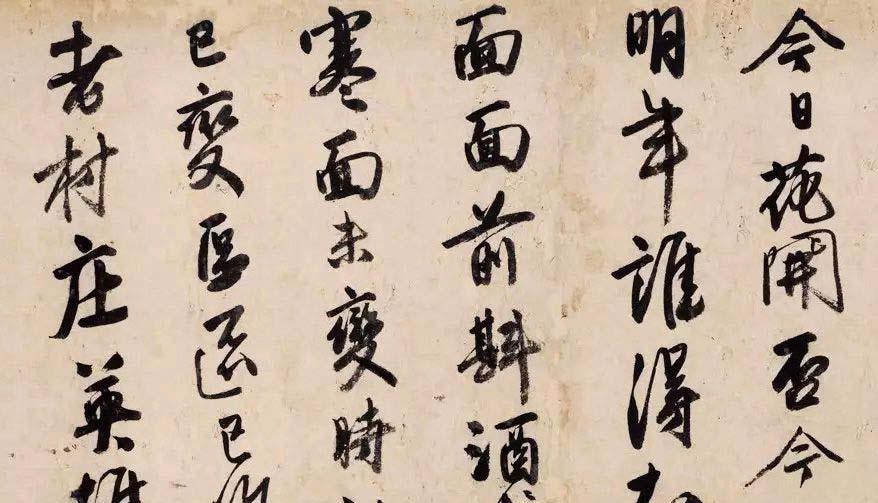 今日花開否今
明年誰得
面面前斟酒
寒面未變時
已變區區已
老村庄英